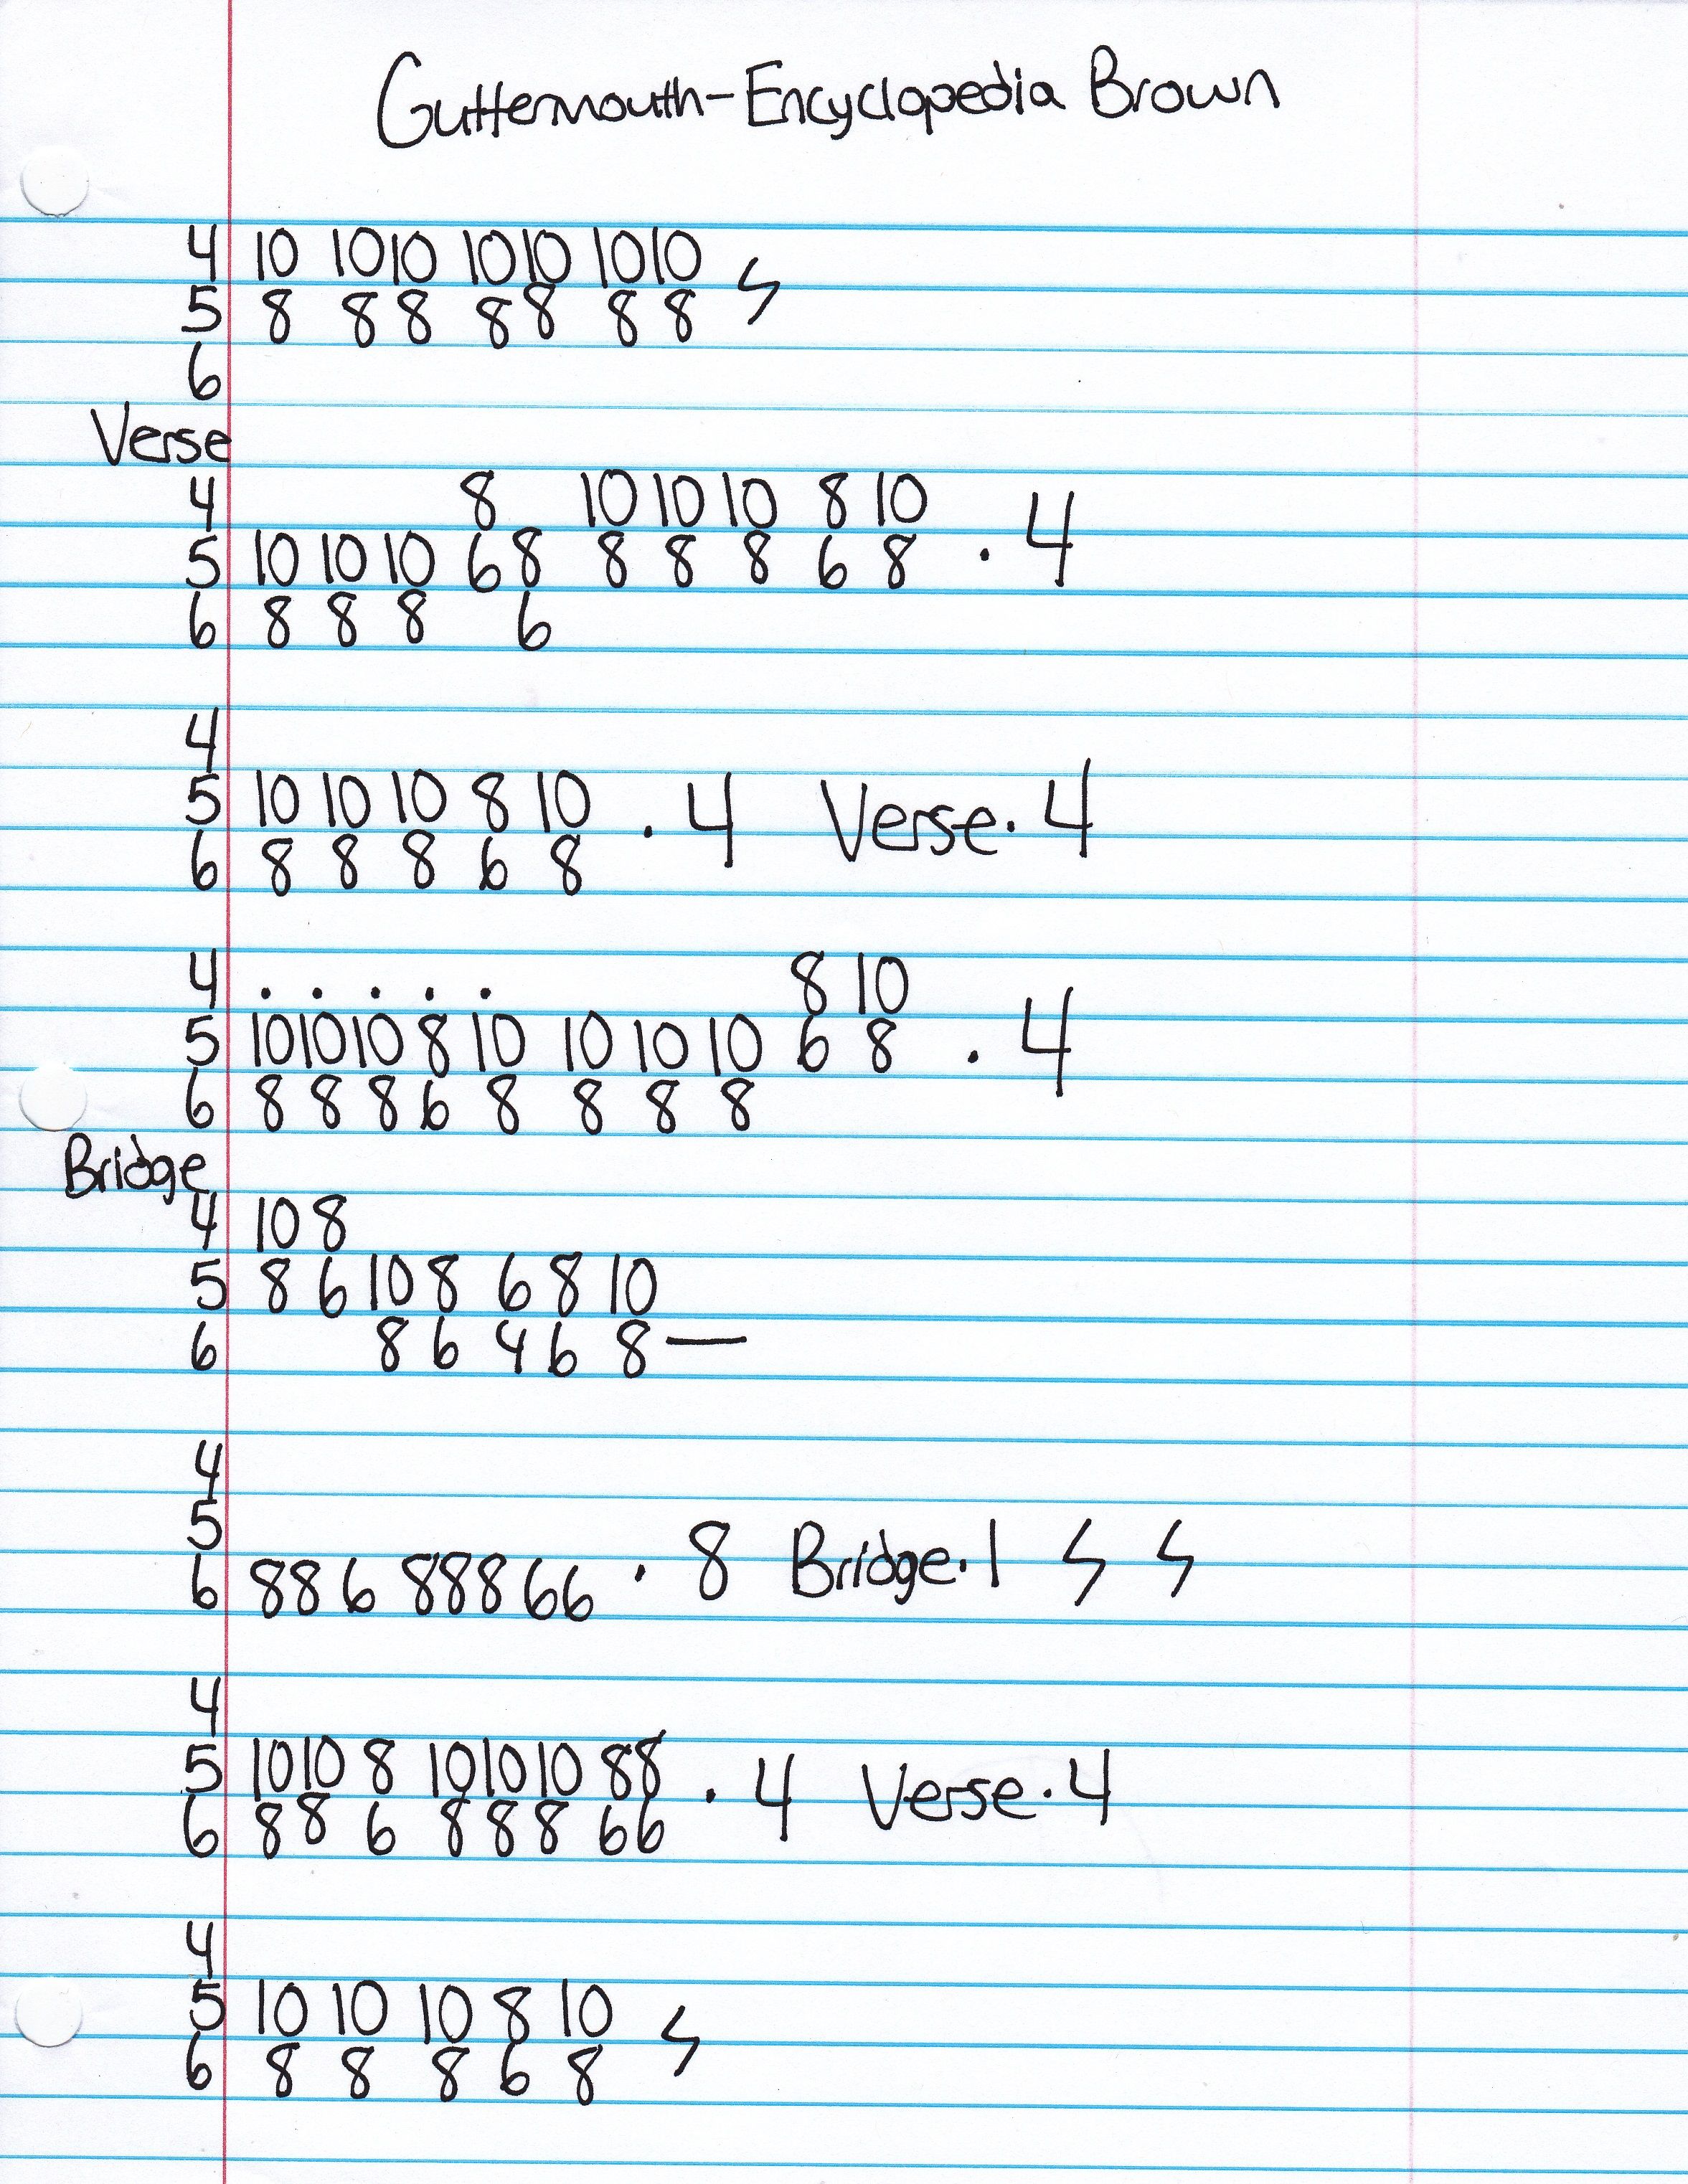 Guttermouth-Encyclopedia Brown
4 10 10 10 10 10 10 10
5 8 8 8 8 8 8 8 ϟ
6
Verse
4 8 10 10 10 8 10
5 10 10 10 6 8 8 8 8 6 8 · 4
6 8 8 8 6
4
5 10 10 10 8 10 · 4 Verse · 4
6 8 8 8 6 8
4 . . . . . 8 10
5 10 10 10 8 10 10 10 10 6 8 · 4
6 8 8 8 6 8 8 8 8
Bridge
4 10 8
5 8 6 10 8 6 8 10
6 8 6 4 6 8 —
4
5
6 8 8 6 8 8 8 6 6 · 8 Bridge · 1 ϟ ϟ
4
5 10 10 8 10 10 10 8 8 · 4 Verse · 4
6 8 8 6 8 8 8 6 6
4
5 10 10 10 8 10 ϟ
6 8 8 8 6 8